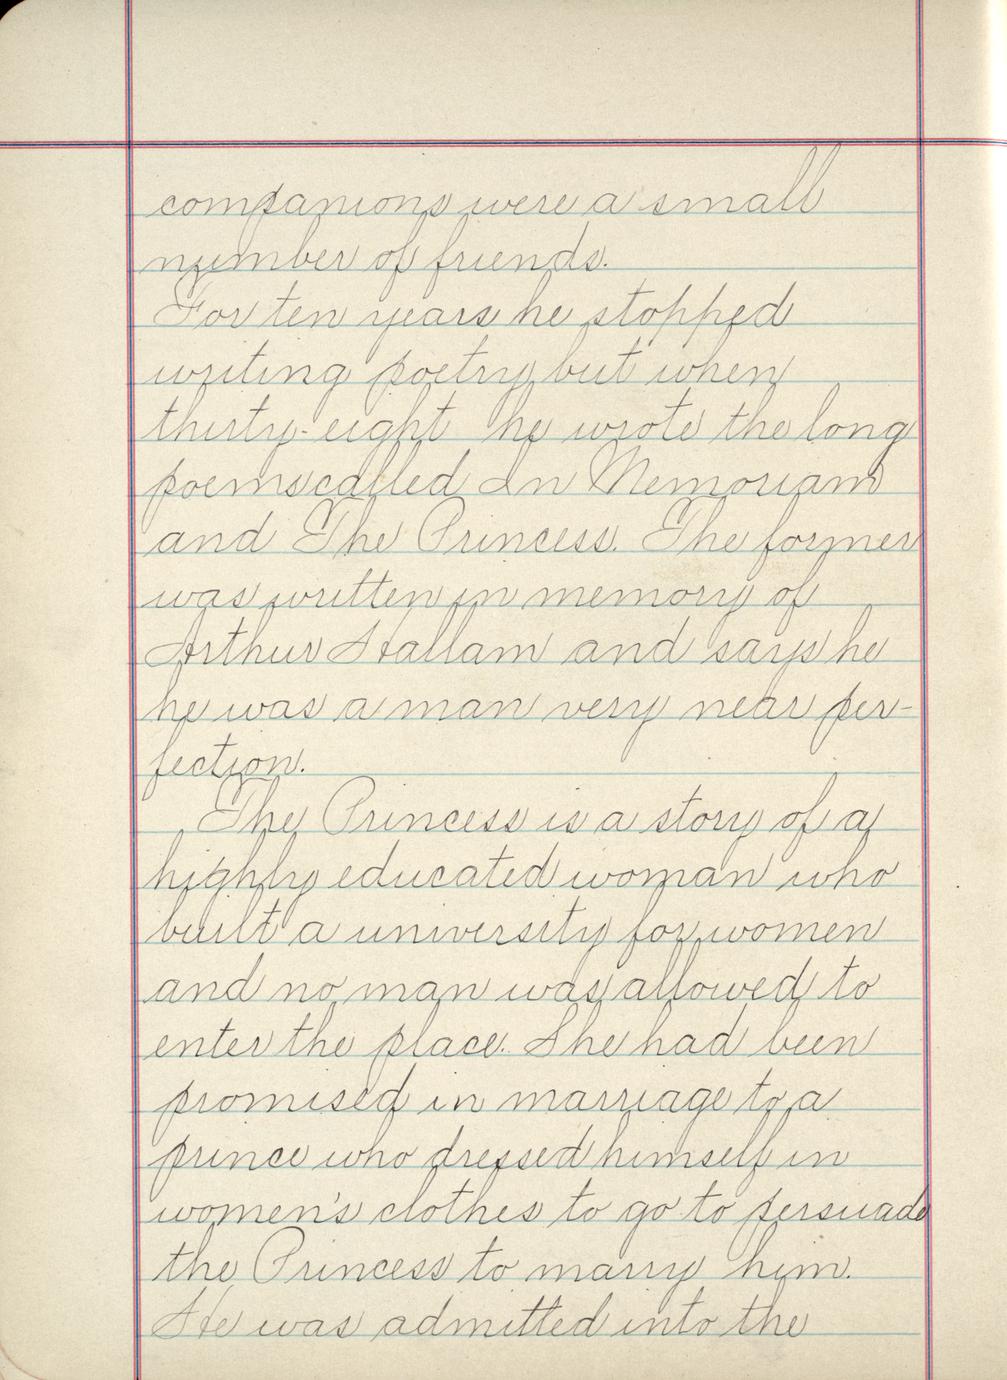 companions were a small
number of friends.
For ten years he stopped
writing poetry but when
thirty-eight he wrote the long
poems called In Memoriam
and The Princess. The former
was written in memory of
Arthur Hallam and says he
he was a man very near per-
fection.
The Princess is a story of a
highly educated woman who
built a university for women
and no man was allowed to
enter the place. She had been
promised in marriage to a
prince who dressed himself in
women's clothes to go to persuade
the Princess to marry him.
He was admitted into the